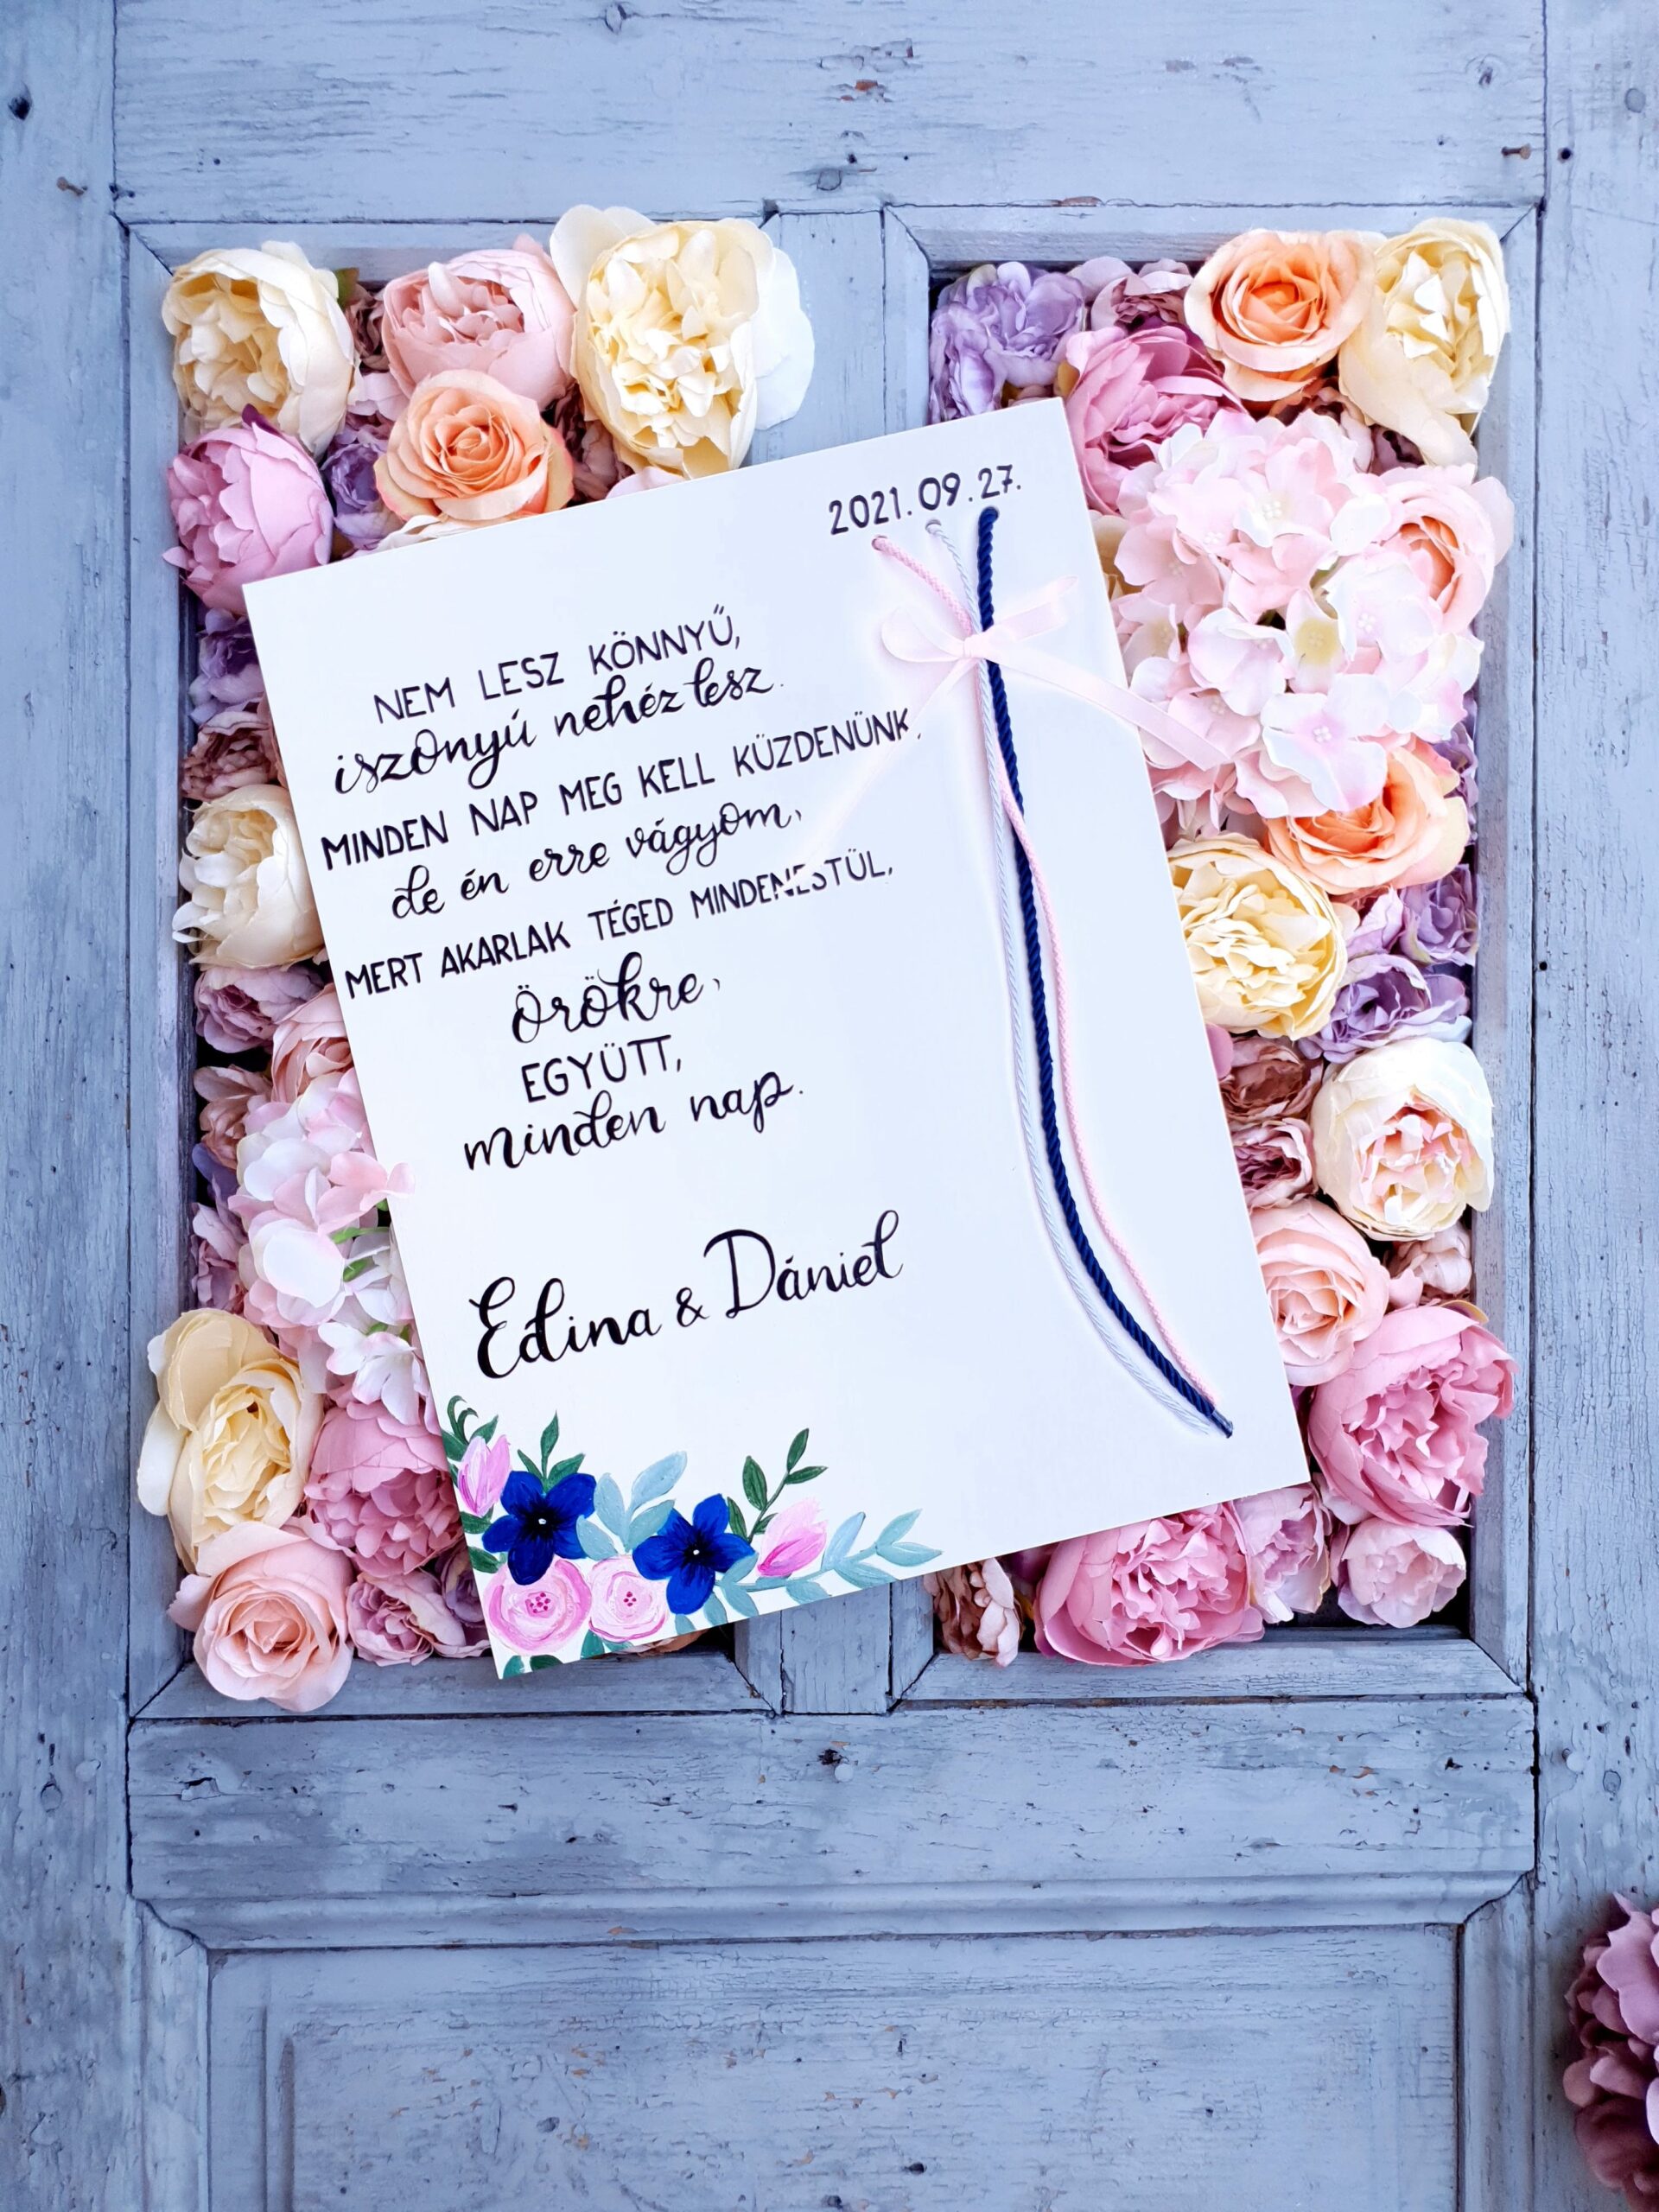 2021.09.27.
NEM LESZ KÖNNYŰ,
iszonyú nehéz lesz.
MINDEN NAP MEG KELL KÜZDENÜNK,
de én erre vágyom,
MERT AKARLAK TÉGED MINDENESTÜL,
örökre,
EGYÜTT,
minden nap.
Edina & Dániel